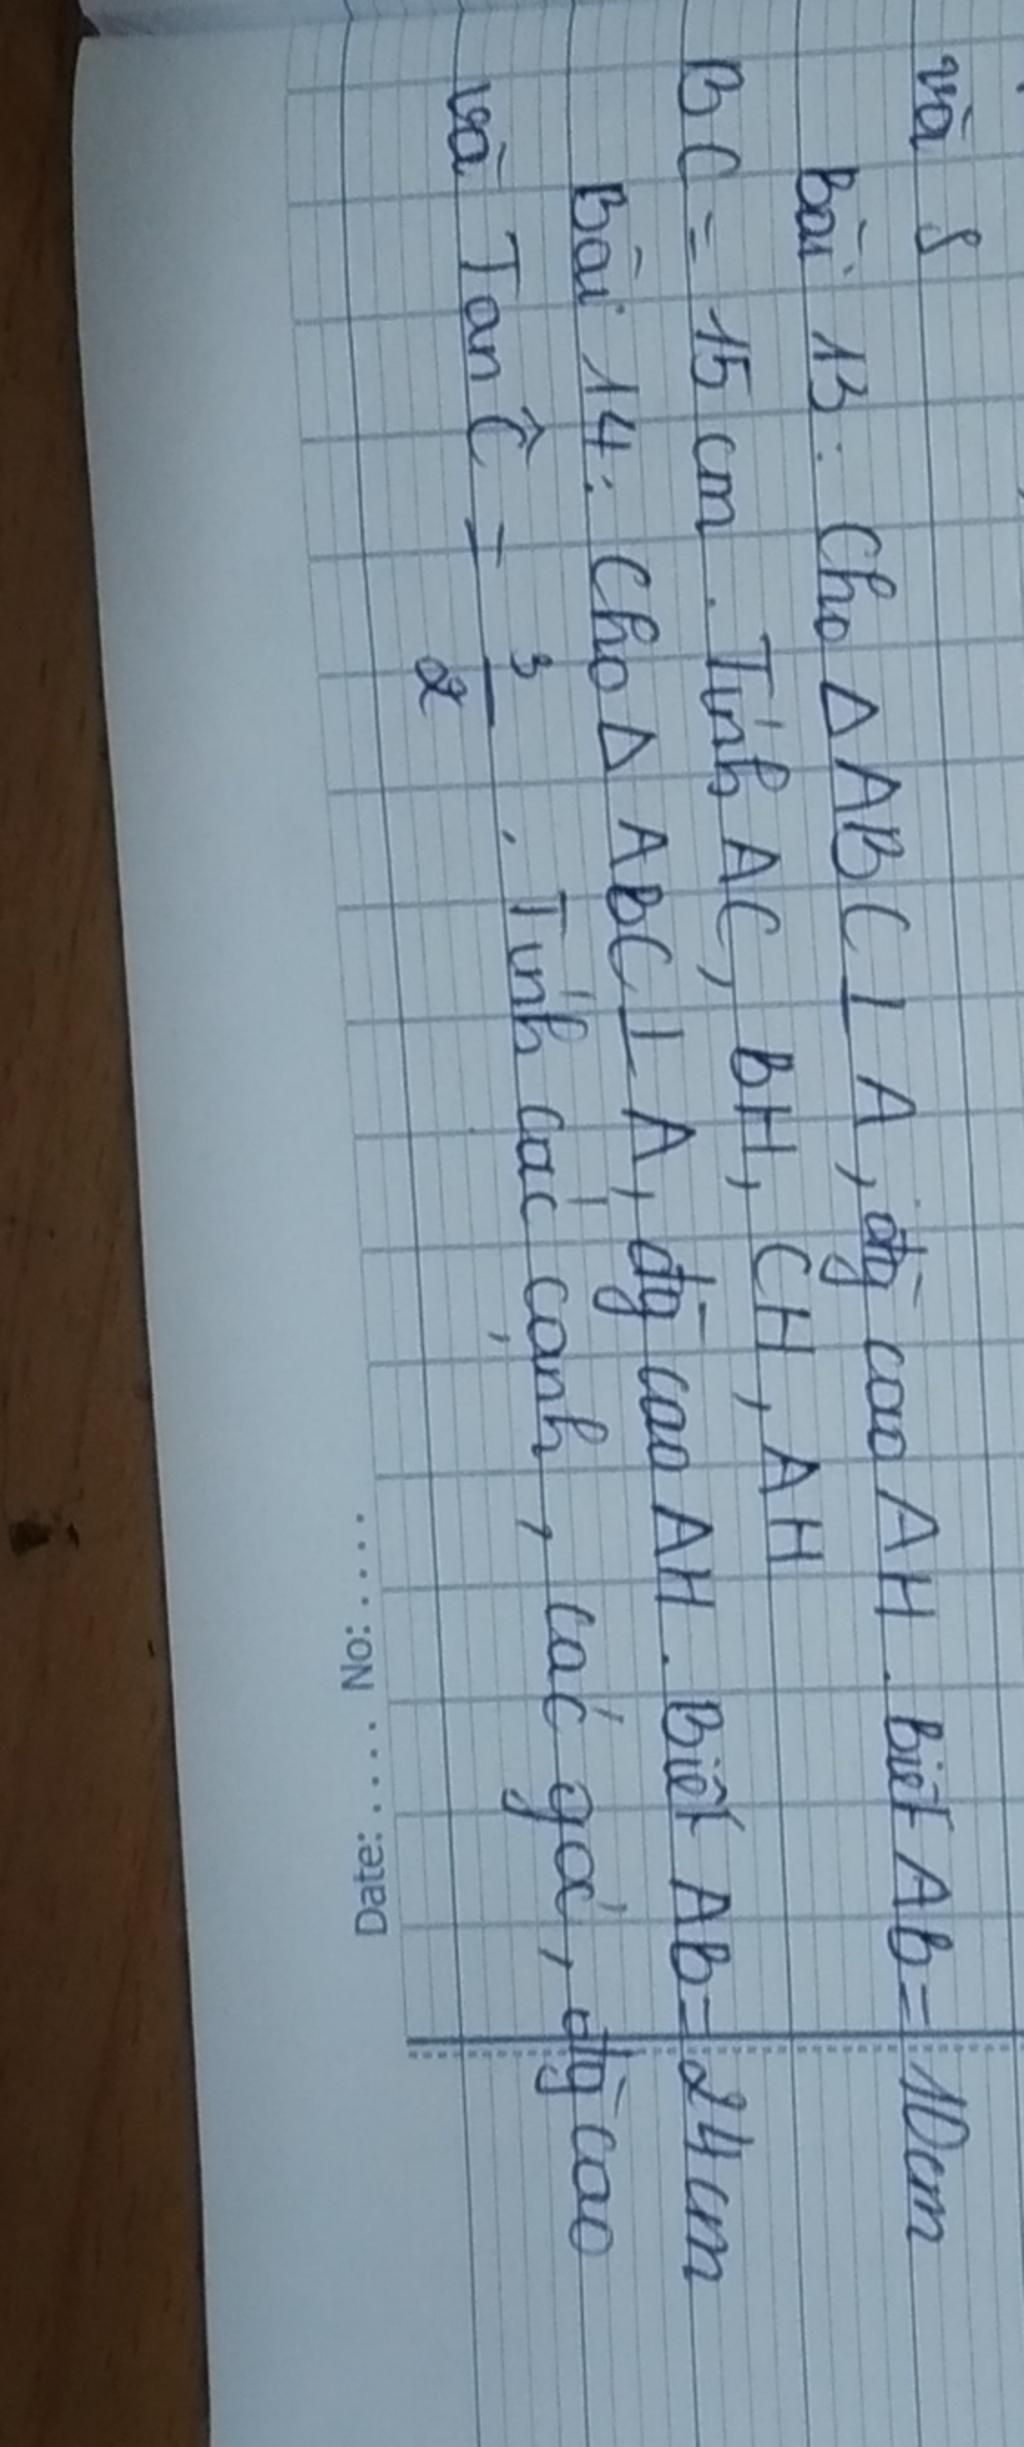 và 8
Bài 13: Cho Δ ABC ⊥ A, đg̀ cao AH. Biết AB = 10cm
BC = 15 cm. Tính AC, BH, CH, AH
Bài 14: Cho Δ ABC ⊥ A, đg̀ cao AH. Biết AB = 24 cm
và Tan Ĉ = 3/2. Tính các cạnh, các góc, đg̀ cao
Date:..... No:.....